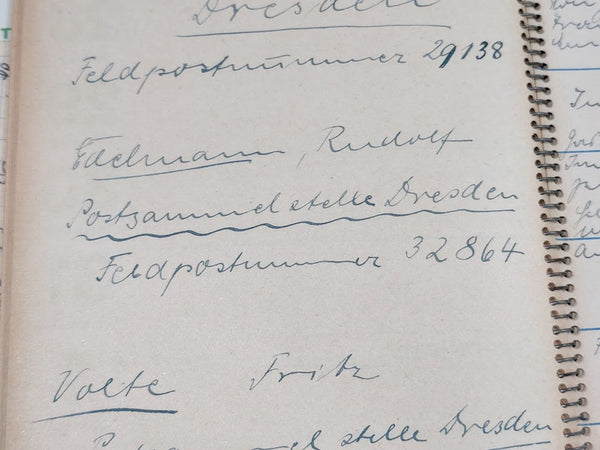 Dresden
Feldpostnummer 29138
Edelmann, Rudolf
Postsammelstelle Dresden
Feldpostnummer 32864
Volte Fritz
stelle Dresden